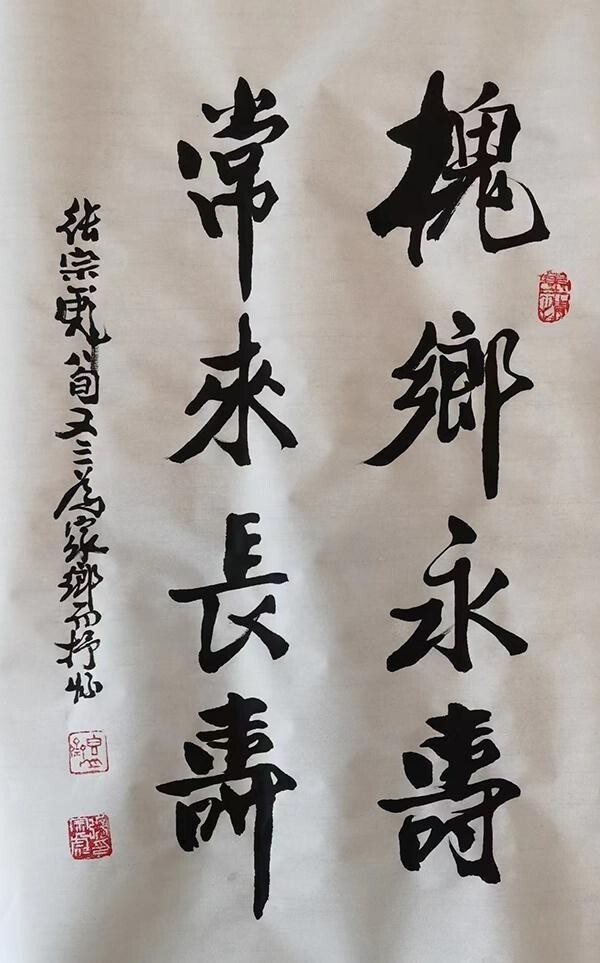 槐鄉永壽
常來長壽
張宗彪八旬又三為家鄉而抒怀